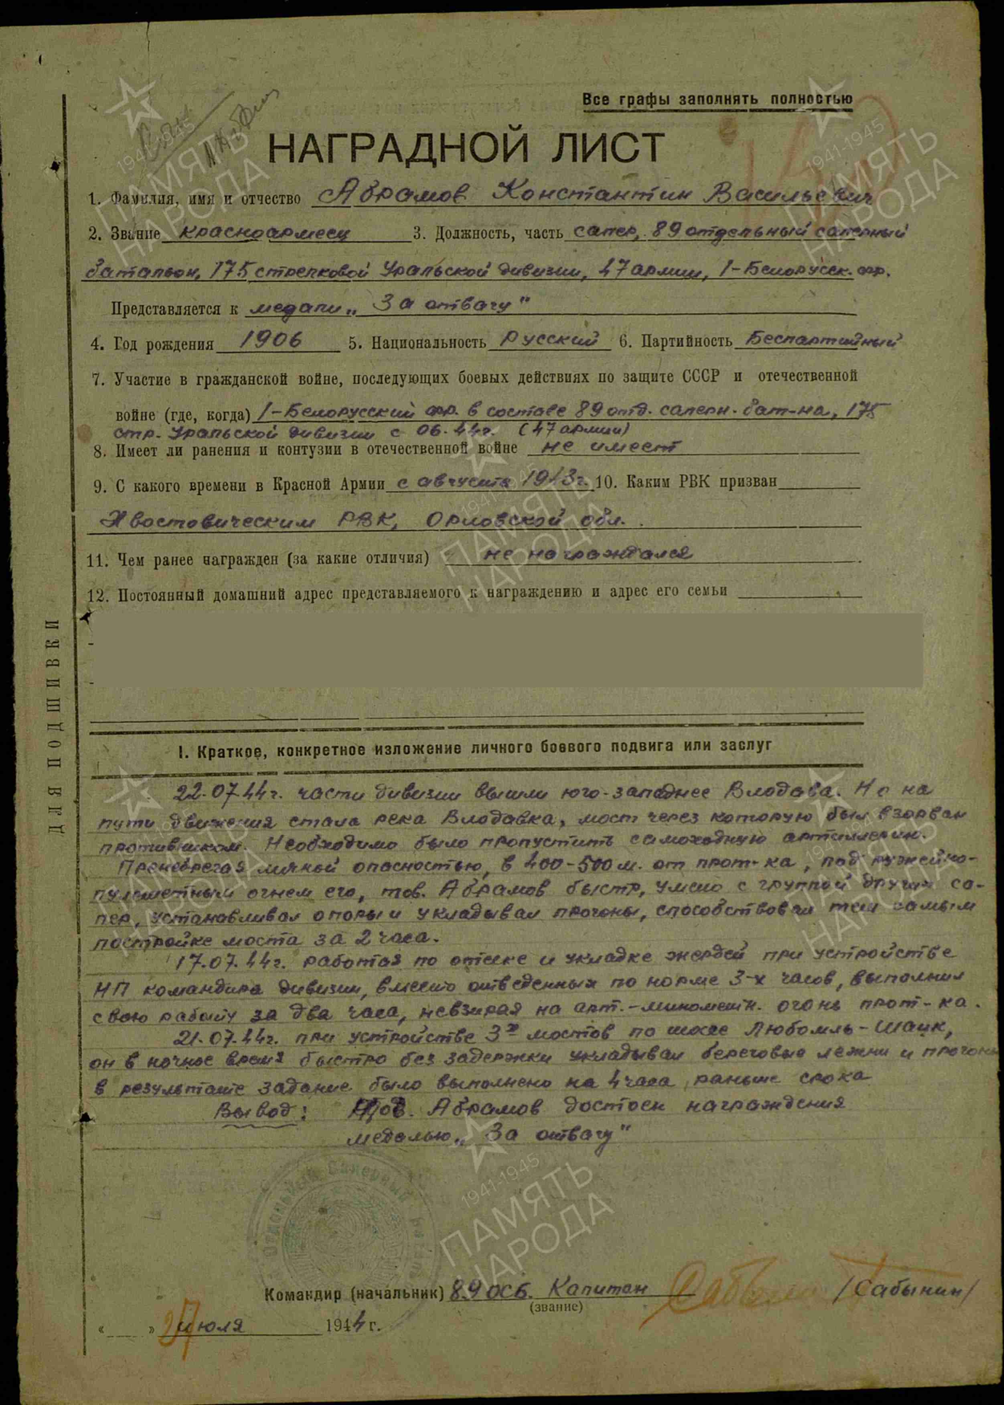 Все графы заполнять полностью
НАГРАДНОЙ ЛИСТ
1. Фамилия, имя и отчество Абрамов Константин Васильевич
2. Звание красноармеец 3. Должность, часть сапер, 89 отдельный саперный
батальон, 175 стрелковой Уральской дивизии, 47 армии, 1-Белорусск. фр.
Представляется к медали „За отвагу"
4. Год рождения 1906 5. Национальность Русский 6. Партийность Беспартийный
7. Участие в гражданской войне, последующих боевых действиях по защите СССР и отечественной
войне (где, когда) 1-Белорусский фр. в составе 89 отд. саперн. бат-на, 175
стр. Уральской дивизии с 06.44г. (47 армии)
8. Имеет ли ранения и контузии в отечественной войне не имеет
9. С какого времени в Красной Армии с августа 1943г. 10. Каким РВК призван
Хвостовическим РВК, Орловской обл.
11. Чем ранее награжден (за какие отличия) не награждался
12. Постоянный домашний адрес представляемого к награждению и адрес его семьи
ДЛЯ ПОДШИВКИ
I. Краткое, конкретное изложение личного боевого подвига или заслуг
22.07.44г. части дивизии вышли юго-западнее Влодава. Но на
пути движения стала река Влодавка, мост через которую был взорван
противником. Необходимо было пропустить самоходную артиллерию.
Пренебрегая личной опасностью, в 400-500 м. от прот-ка, под ружейно-
пулеметным огнем его, тов. Абрамов быстр, умело с группой других са-
пер, устанавливал опоры и укладывал прогоны, способствовал тем самым
постройке моста за 2 часа.
17.07.44г. работая по отеске и укладке жердей при устройстве
НП командира дивизии, вместо отведенных по норме 3-х часов, выполнил
свою работу за два часа, невзирая на арт.-миномётн. огонь прот-ка.
21.07.44г. при устройстве 3х мостов по шоссе Любомль-Шацк,
он в ночное время быстро без задержки укладывал береговые лежни и прогоны
в результате задание было выполнено на 4 часа раньше срока
Вывод: Тов. Абрамов достоен награждения
медалью „За отвагу"
Командир (начальник) 89 осб. Капитан /Сабынин/
(звание)
« 27 » июля 1944 г.
1941-1945
ПАМЯТЬ
НАРОДА